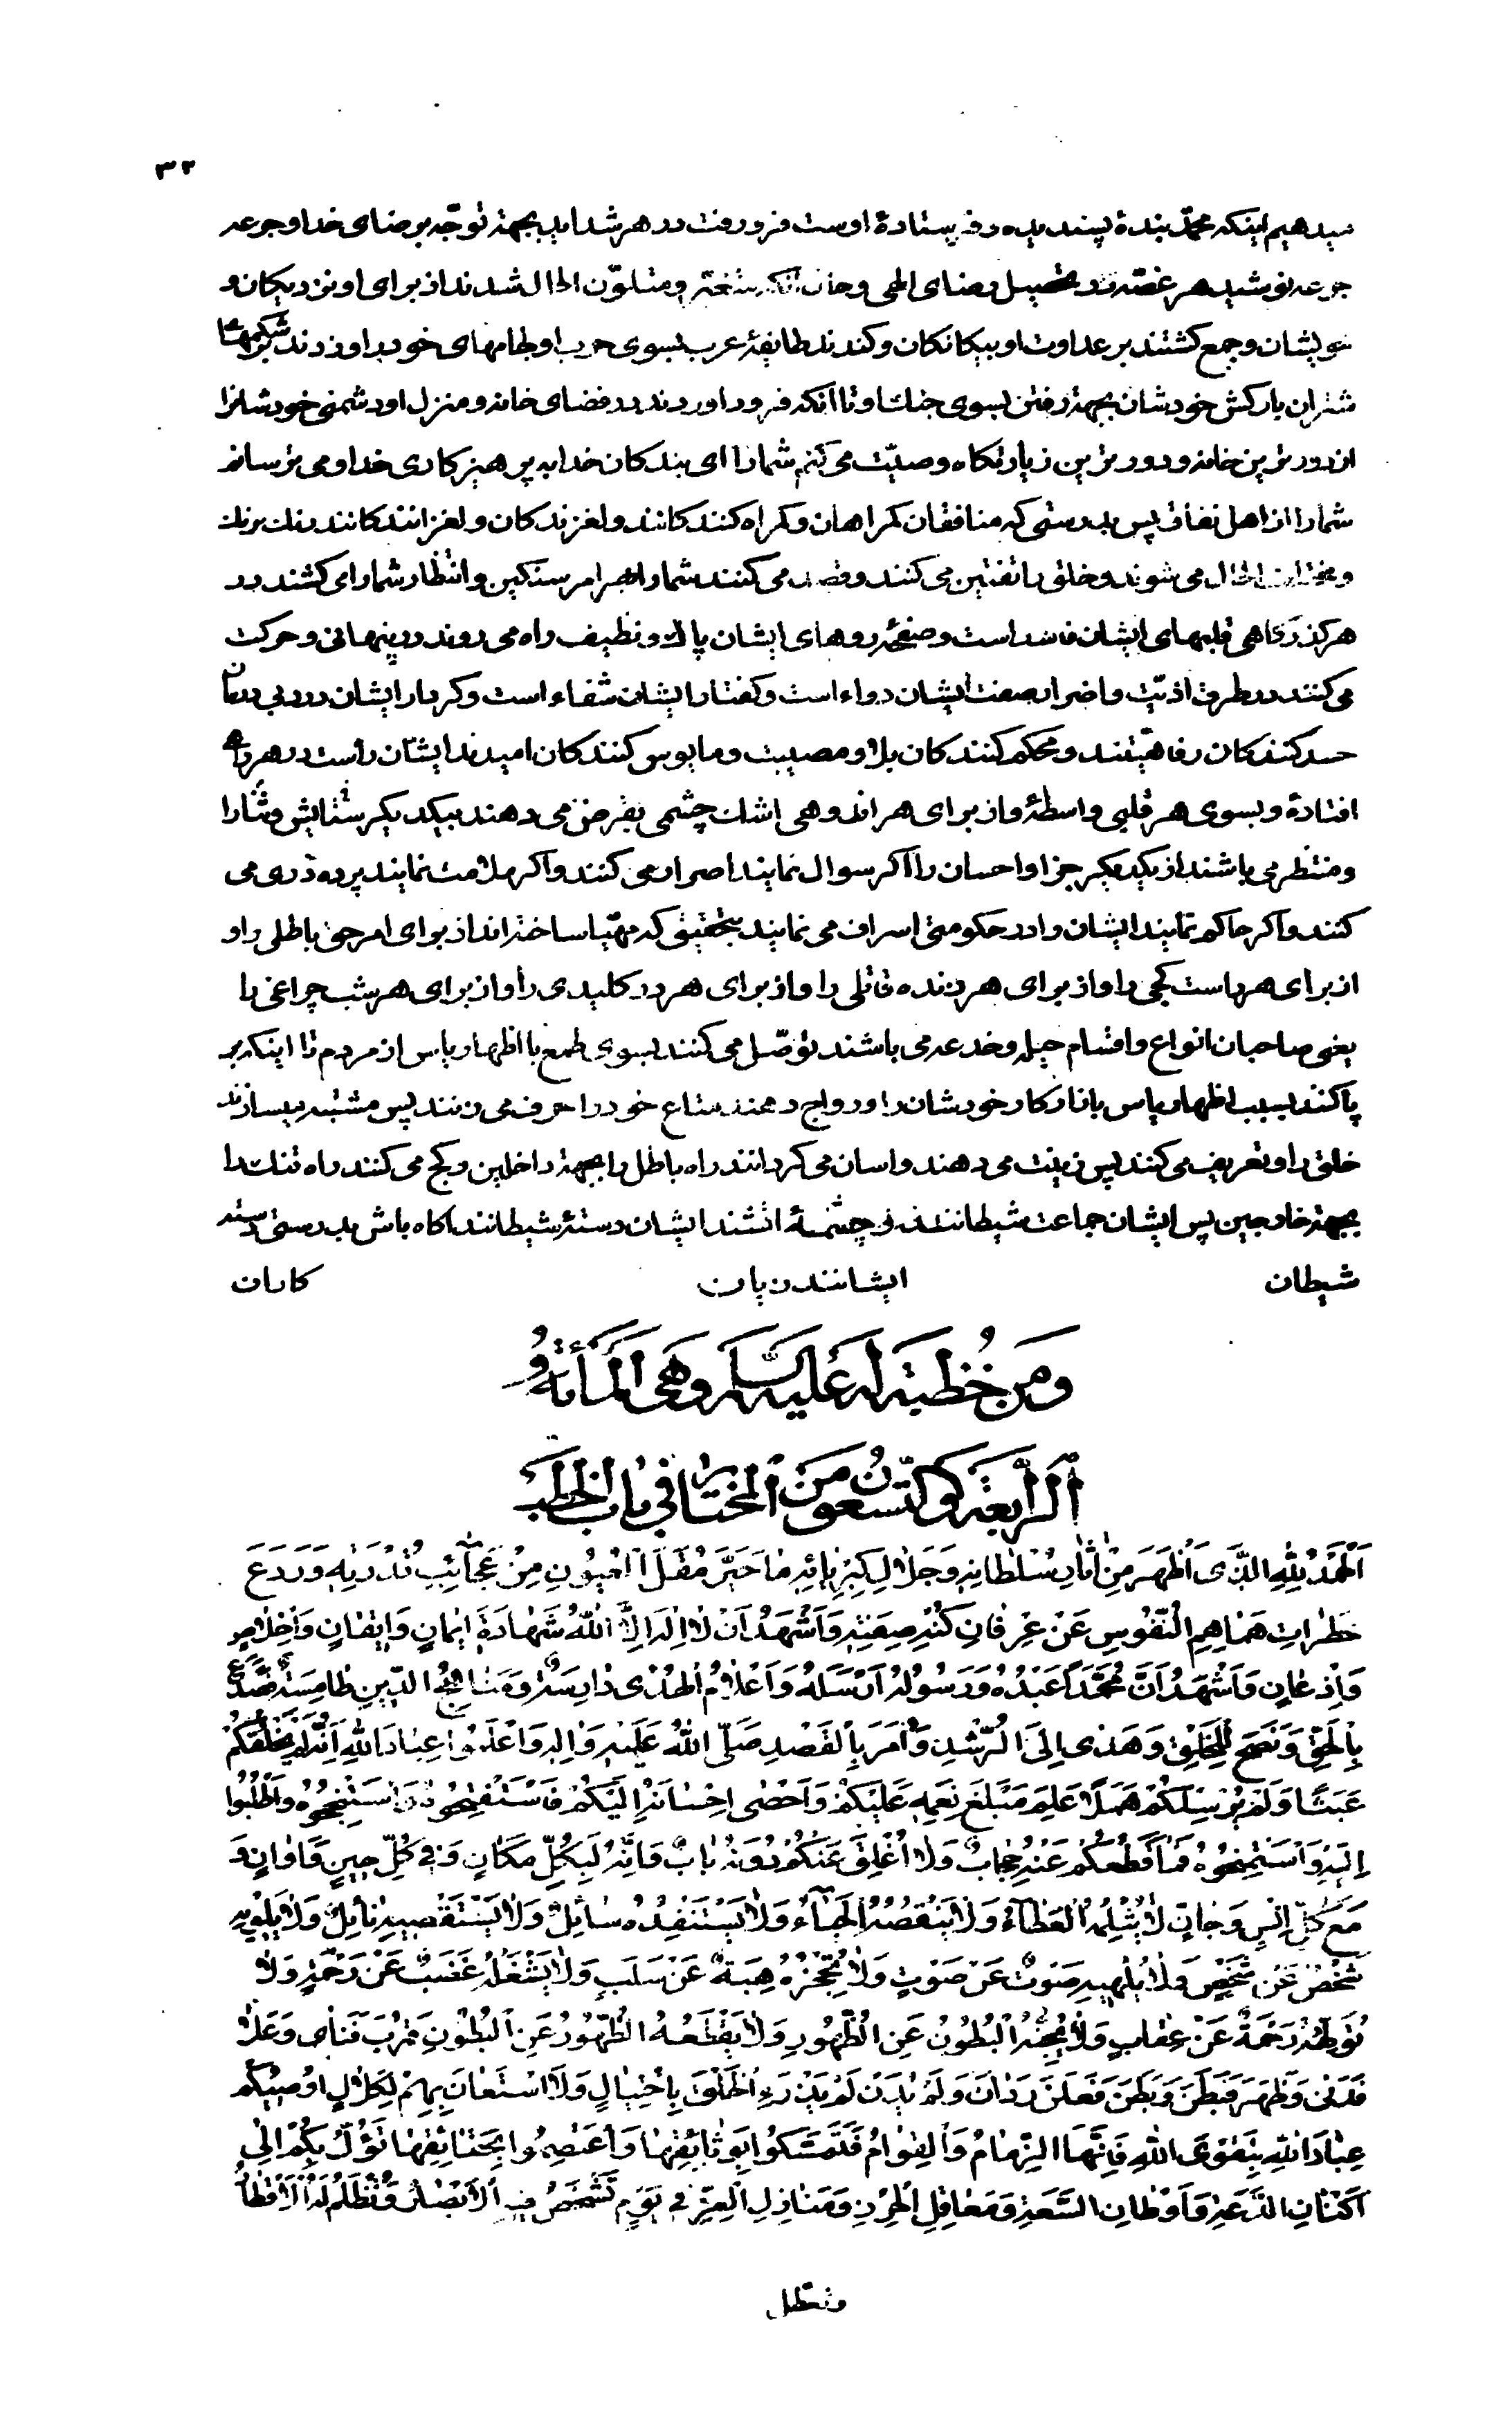 ۳۲
میدهیم اینکه محمّد بندهٔ پسندیده و فرستادهٔ اوست فرو رفت در هر شداید بجهة توجّه برضای خدا و جرعه
جرعه نوشید هر غصّه در تحصیل رضای الهی و حال آنکه متغیّر و متلوّن الحال شدند از برای او نزدیکان و
خویشان و جمع گشتند بر عداوت او بیگانگان و کندند طایفهٔ عرب بسوی حرب او لجامهای خود را و زدند بر شکمهای
شتران بارکش خودشان بجهة رفتن بسوی جنك او تا آنکه فرود اوردند در فضای خانه و منزل او دشمنی خودشانرا
از دورترین خانه و دورترین زیارتکاه وصیّت می کنم شما را ای بندکان خدا به پرهیزکاری خدا و می ترسانم
شما را از اهل نفاق پس بدرستی که منافقان کمراهان و کمراه کنندکانند و لغزندکان و لغزانندکانند رنك برنك
و مختلف الحال می شوند و خلق را تفتین می کنند و قصد می کنند شما را بهر امر سنکین و انتظار شما را می کشند در
هر کذرکاهی قلبهای ایشان فاسد است و صفحهٔ روهای ایشان پاك و نظیف راه می روند در پنهانی و حرکت
می کنند در طرف اذیّت و اضرار صفت ایشان دواء است و کفتار ایشان شفاء است و کردار ایشان درد بی درمان
حسد کنندکان رفاهیّتند و محکم کنندکان بلا و مصیبت و مایوس کنندکان امیدند ایشان راست در هر راهی
افتادهٔ و بسوی هر قلبی واسطهٔ و از برای هر اندوهی اشك چشمی بقرض می دهند بیکدیکر ستایش و ثنا را
و منتظر می باشند از یکدیکر جزا و احسان را اکر سوال نمایند اصرار می کنند و اکر ملامت نمایند پرده دری می
کنند و اکر حاکم نمایند ایشان را در حکومتی اسراف می نمایند بتحقیق که مهیّا ساخته اند از برای امر حقی باطلی را و
از برای هر راست کجی را و از برای هر زنده قاتلی را و از برای هر در کلیدی را و از برای هر شب چراغی را
یعنی صاحبان انواع و اقسام حیله و خدعه می باشند توصّل می کنند بسوی طمع با اظهار یاس از مردم تا اینکه بر
پا کنند بسبب اظهار یاس بازار کار خودشان را و رواج دهند متاع خود را حرف می زنند پس مشتبه میسازند
خلق را و تعریف می کنند پس زینت می دهند و اسان می کردانند راه باطل را بجهة داخلین و کج می کنند راه تنك را
بجهة خارجین پس ایشان جماعت شیطانند و چشمهٔ اتشند ایشان دستهٔ شیطانند اکاه باش بدرستی دسته
شیطان ایشانند زیان کاران
وَمِن خُطبَة لَه عَلَیه السَّلام وَهِیَ المَأَة وَ
اَلرّابِعَة وَ التّسعُونَ مِنَ المُختار فی باب الخُطَب
اَلْحَمْدُ لِلّٰهِ الَّذی اَظْهَرَ مِنْ اٰثارِ سُلْطانِهِ وَ جَلالِ کِبْرِیائِهِ مٰا حَیَّرَ مُقَلَ الْعُیُونِ مِنْ عَجٰائِبِ قُدْرَتِهِ وَ رَدَعَ
خَطَراتِ هَمٰاهِمِ النُّفُوسِ عَنْ عِرْفانِ کُنْهِ صِفَتِهِ وَ اَشْهَدُ اَنْ لٰا اِلٰهَ اِلَّا اللّٰهُ شَهٰادَةَ اِیمٰانٍ وَ اِیقٰانٍ وَ اِخْلاصٍ
وَ اِذْعٰانٍ وَ اَشْهَدُ اَنَّ مُحَمَّدًا عَبْدُهُ وَ رَسُولُهُ اَرْسَلَهُ وَ اَعْلامُ الْهُدٰی دٰارِسَةٌ وَ مَنٰاهِجُ الدّینِ طٰامِسَةٌ فَصَدَعَ
بِالْحَقِّ وَ نَصَحَ لِلْخَلْقِ وَ هَدٰی اِلَی الرُّشْدِ وَ اَمَرَ بِالْقَصْدِ صَلَّی اللّٰهُ عَلَیْهِ وَ اٰلِهِ وَ اعْلَمُوا عِبٰادَ اللّٰهِ اَنَّهُ لَمْ یَخْلُقْکُمْ
عَبَثًا وَ لَمْ یُرْسِلْکُمْ هَمَلًا عَلِمَ مَبْلَغَ نِعَمِهِ عَلَیْکُمْ وَ اَحْصٰی اِحْسٰانَهُ اِلَیْکُمْ فَاسْتَفْتِحُوهُ وَ اسْتَنْجِحُوهُ وَ اطْلُبُوا
اِلَیْهِ وَ اسْتَمْنِحُوهُ فَمٰا قَطَعَکُمْ عَنْهُ حِجٰابٌ وَ لٰا اُغْلِقَ عَنْکُمْ دُونَهُ بٰابٌ وَ اِنَّهُ لَبِکُلِّ مَکٰانٍ وَ فی کُلِّ حِینٍ وَ اَوٰانٍ وَ
مَعَ کُلِّ اِنْسٍ وَ جٰانٍّ لٰا یَثْلِمُهُ الْعَطٰآءُ وَ لٰا یَنْقُصُهُ الْحِبٰآءُ وَ لٰا یَسْتَنْفِدُهُ سٰائِلٌ وَ لٰا یَسْتَقْصِیهِ نٰائِلٌ وَ لٰا یَلْوِیهِ
شَخْصٌ عَنْ شَخْصٍ وَ لٰا یُلْهِیهِ صَوْتٌ عَنْ صَوْتٍ وَ لٰا تَحْجُزُهُ هِبَةٌ عَنْ سَلَبٍ وَ لٰا یَشْغَلُهُ غَضَبٌ عَنْ رَحْمَةٍ وَ لٰا
تُولِهُهُ رَحْمَةٌ عَنْ عِقٰابٍ وَ لٰا یُجِنُّهُ الْبُطُونُ عَنِ الظُّهُورِ وَ لٰا یَقْطَعُهُ الظُّهُورُ عَنِ الْبُطُونِ قَرُبَ فَنَاٰی وَ عَلٰا
فَدَنٰی وَ ظَهَرَ فَبَطَنَ وَ بَطَنَ فَعَلَنَ وَ دٰانَ وَ لَمْ یُدَنْ لَمْ یَذْرَءِ الْخَلْقَ بِاحْتِیٰالٍ وَ لَا اسْتَعٰانَ بِهِمْ لِکَلٰالٍ اُوصِیکُمْ
عِبٰادَ اللّٰهِ بِتَقْوَی اللّٰهِ فَاِنَّهَا الزِّمٰامُ وَ الْقِوٰامُ فَتَمَسَّکُوا بِوَثٰائِقِهٰا وَ اعْتَصِمُوا بِحَقٰائِقِهٰا تَؤُلْ بِکُمْ اِلٰی
اَکْنٰانِ الدَّعَةِ وَ اَوْطٰانِ السَّعَةِ وَ مَعٰاقِلِ الْحِرْزِ وَ مَنٰازِلِ الْعِزِّ فی یَوْمٍ تَشْخَصُ فیهِ الْاَبْصٰارُ وَ تُظْلِمُ لَهُ الْاَقْطٰارُ